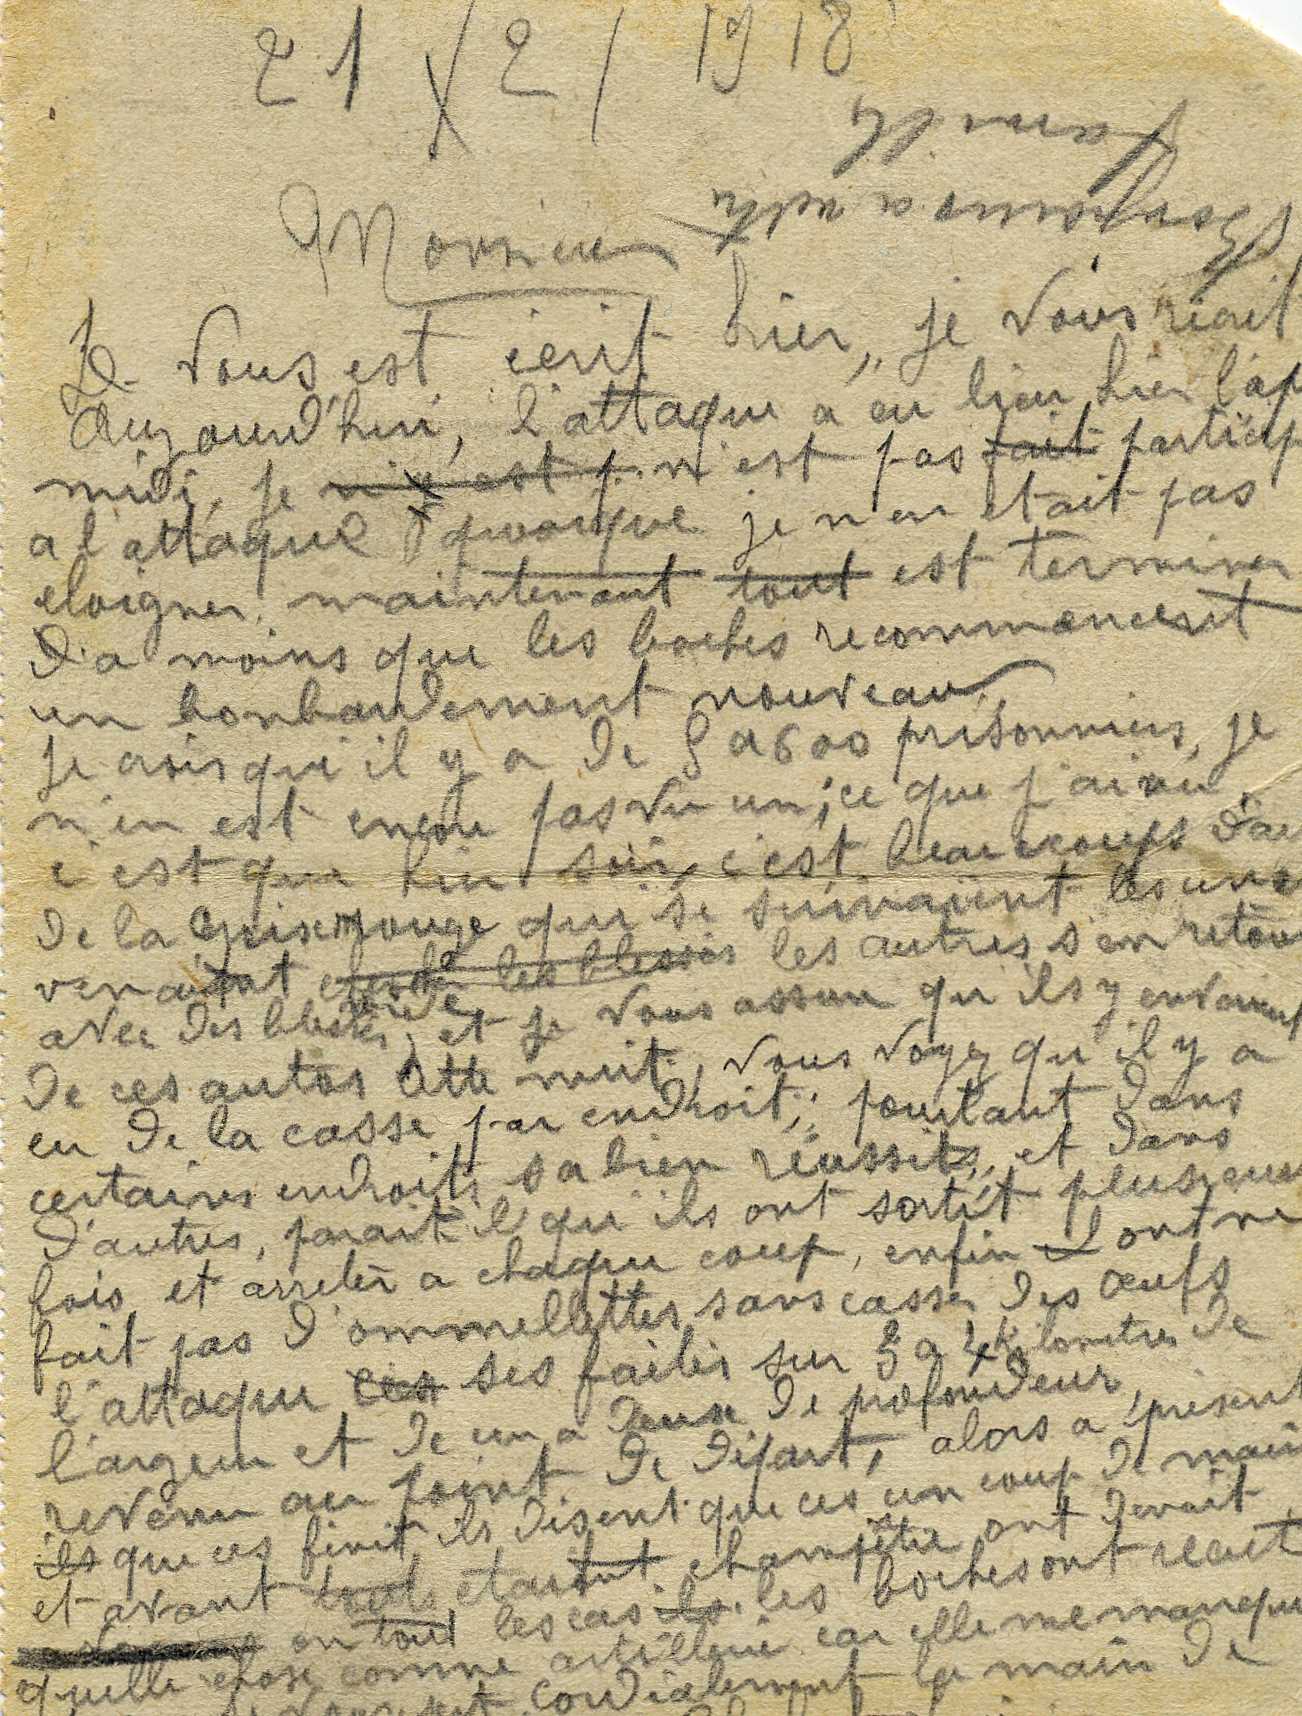 21 / 2 / 1918
Monsieur
Je vous est écrit hier, je vous récrit
Aujourd'hui, l'attaque a eu lieu hier l'ap
midi, je n'est pas fait particip
a l'attaque quoique je n'en etait pas
eloigner, maintenant tout est terminer
d'a moins que les boches recommencent
un bonbardement nouveau,
je crois qu'il y a de 5 a 600 prisonniers, je
n'en est encore pas vu un; ce que j'ai vu,
c'est que hier soir, c'est beaucoups d'au
de la Croix rouge qui se suivaient les uns
venaient vide chercher les blessés les autres s'en retour
avec des blessés, et je vous assure qu'ils y en vaient
de ces autos cette nuit, vous voyez qu'il y a
eu de la casse par endroit; pourtant dans
certains endroits sa bien réussit, et dans
d'autres, parait il qu'ils ont sortit plusieurs
fois et arreter a chaque coup, enfin ont ne
fait pas d'ommellettes sans casser des œufs
l'attaque ces ses faites sur 3 a 4 kilometres de
l'argeur et de un a deux de profondeur,
revenu au point de départ, alors a présent
ils que ces finit ils disent que ces un coup de main
et avant touts etaient champetre ont devait
en tout les cas les boches ont recut
quelle chose comme artillerie car elle me manque
cordialement la main de